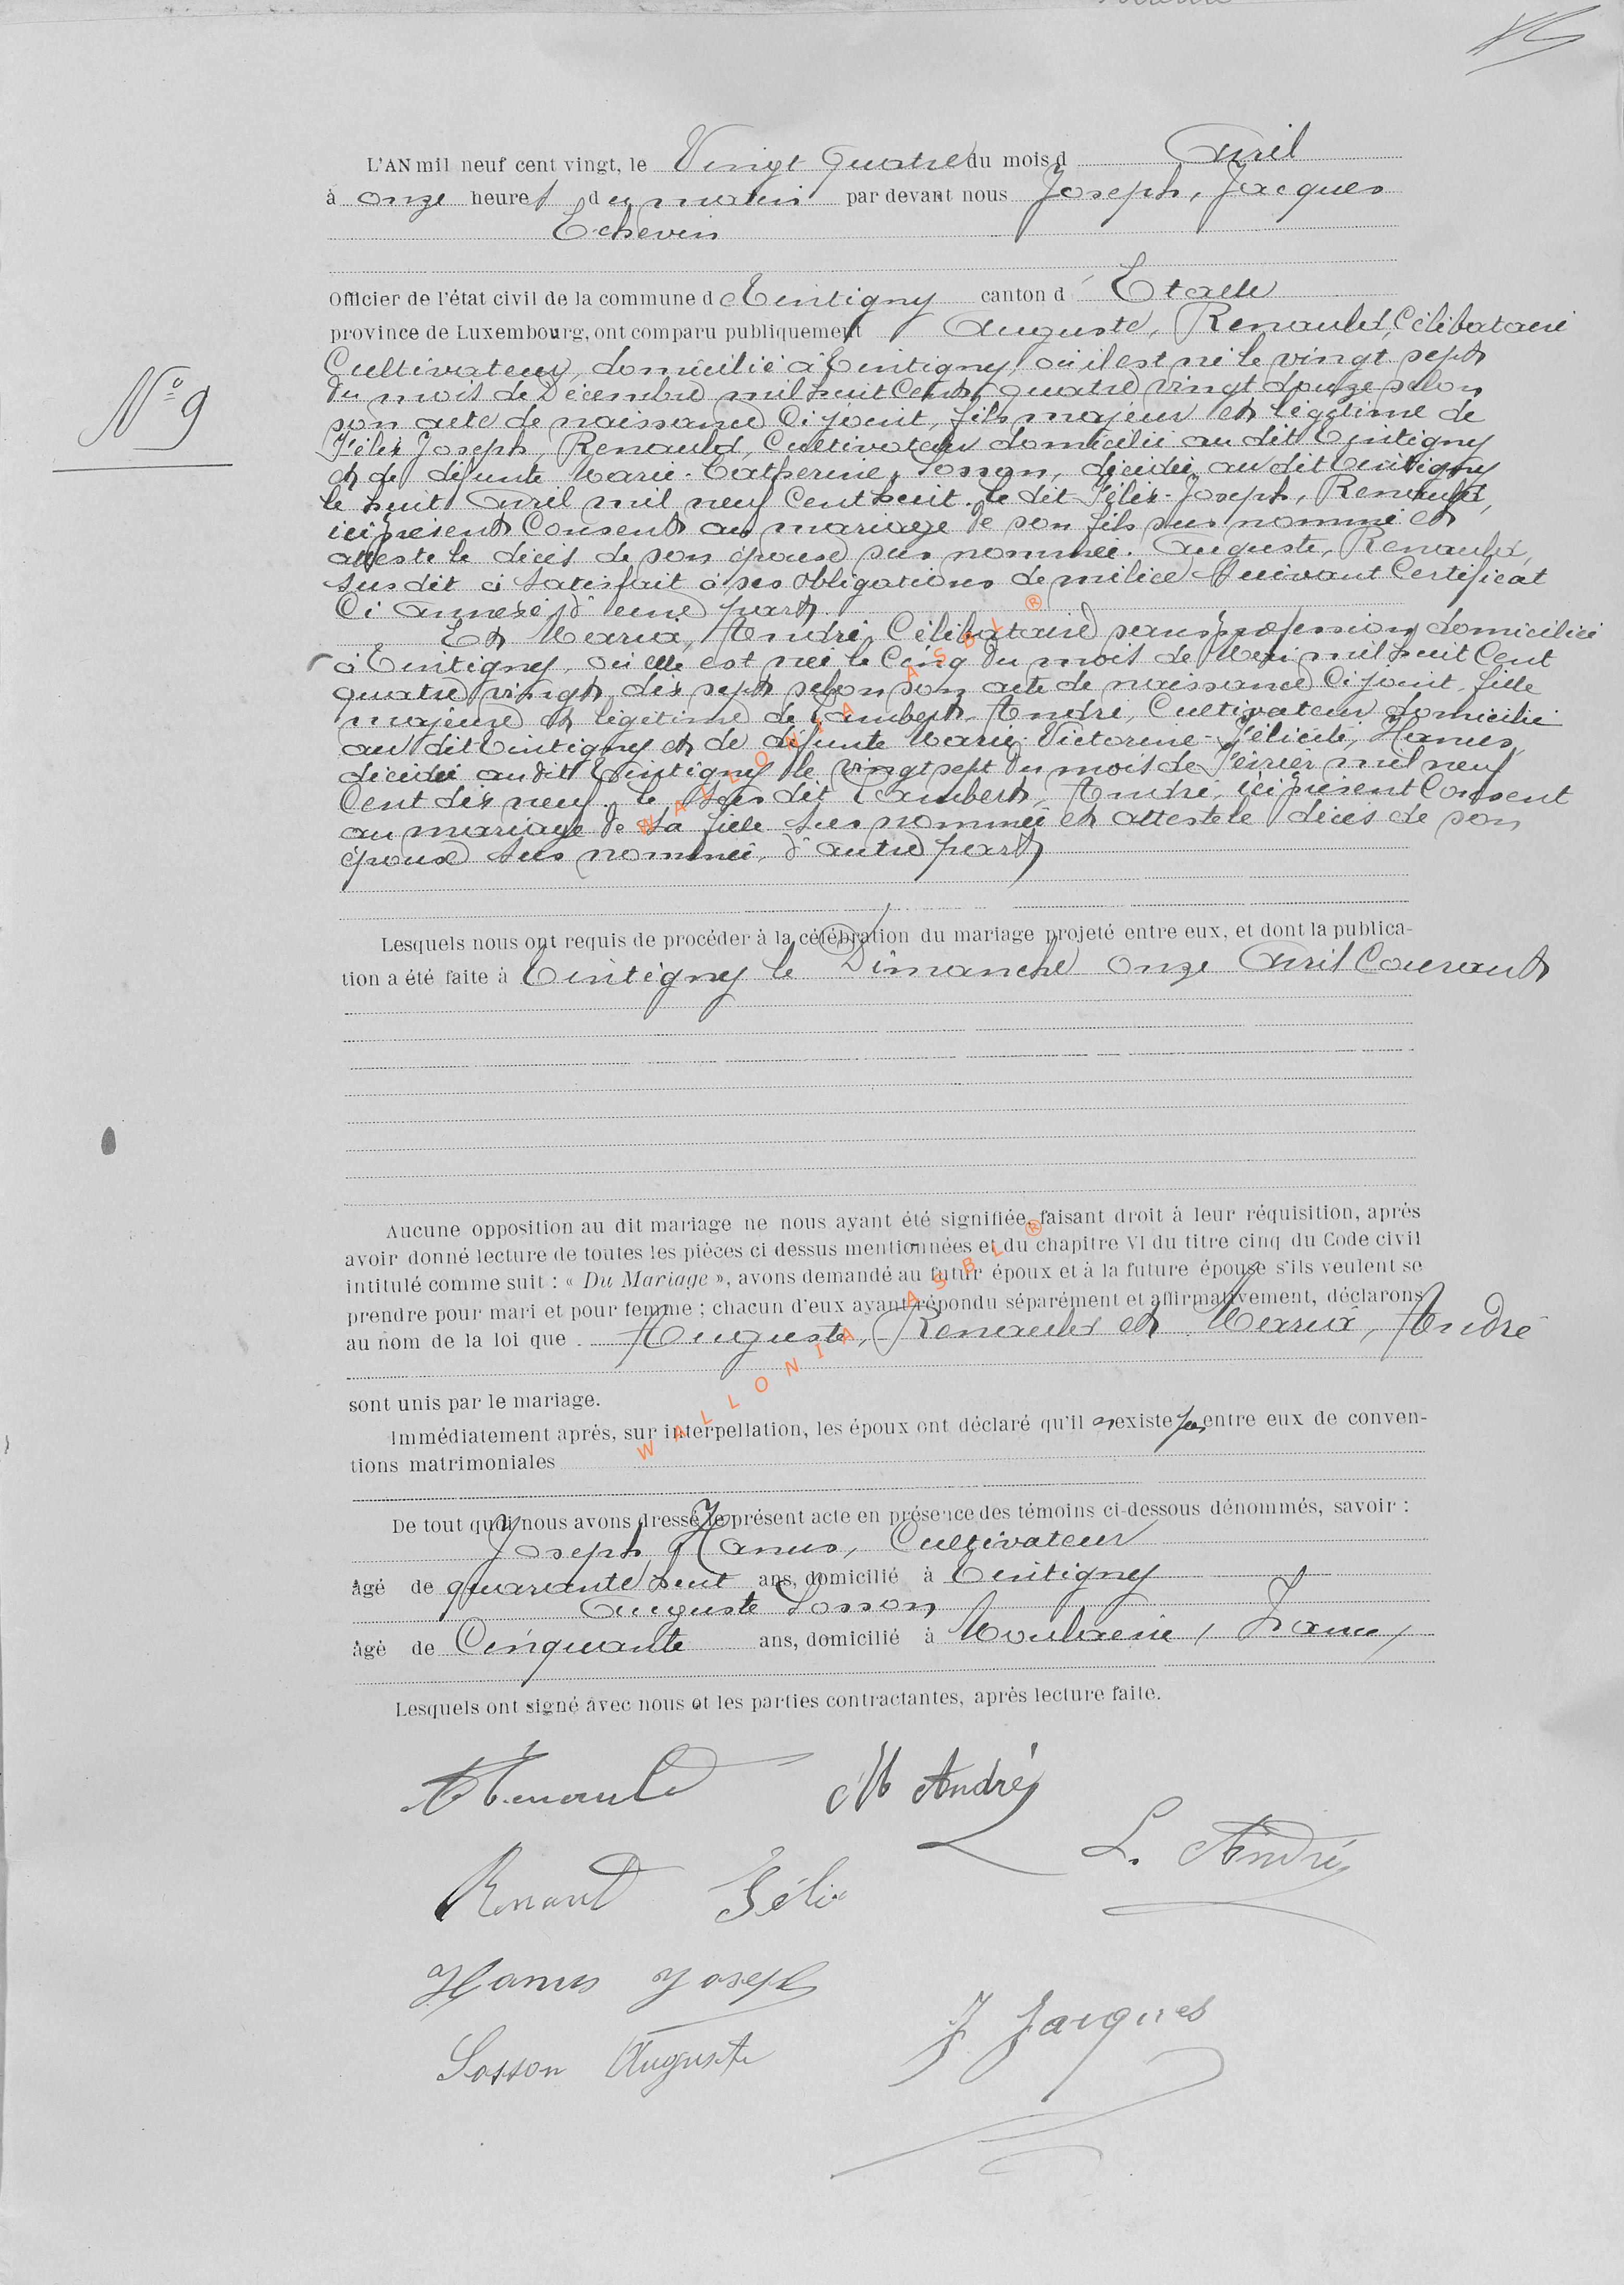 L'AN mil neuf cent vingt, le Vingt quatre du mois d Avril
à onze heures du matin par devant nous Joseph, Jacques
Echevin
Officier de l'état civil de la commune d Tintigny canton d' Etalle
province de Luxembourg, ont comparu publiquement Auguste, Renauld, Célibataire
Cultivateur, domicilié à Tintigny, où il est né le vingt sept
du mois de Décembre mil huit Cent quatre vingt douze selon
son acte de naissance Ci joint, fils majeur et légitime de
Félix Joseph, Renauld, Cultivateur domicilié au dit Tintigny
et de défunte Marie-Catherine, Sosson, décédée au dit Tintigny
le huit Avril mil neuf Cent huit. Le dit Félix-Joseph, Renauld,
ici présent Consent au mariage de son fils sus nommé et
atteste le décès de son épouse sus nommée. Auguste, Renauld,
Susdit à Satisfait à ses obligations de milice Suivant Certificat
Ci annexé, d'une part.
Et Maria, André, Célibataire sans profession domiciliée
à Tintigny, où elle est née le Cinq du mois de Mai mil huit Cent
quatre vingt dix sept selon son acte de naissance Ci joint, fille
majeure et légitime de Lambert, André, Cultivateur domicilié
au dit Tintigny et de défunte Marie-Victorine-Félicité, Hanus,
décédée au dit Tintigny le vingt sept du mois de Février mil neuf
Cent dix neuf. Le Sus dit Lambert, André, ici présent Consent
au mariage de Sa fille Sus nommée et atteste le décès de son
épouse Sus nommée, d'autre part
Lesquels nous ont requis de procéder à la célébration du mariage projeté entre eux, et dont la publica-
tion a été faite à Tintigny le Dimanche onze Avril Courant
Aucune opposition au dit mariage ne nous ayant été signifiée, faisant droit à leur réquisition, après
avoir donné lecture de toutes les pièces ci dessus mentionnées et du chapitre VI du titre cinq du Code civil
intitulé comme suit : « Du Mariage », avons demandé au futur époux et à la future épouse s'ils veulent se
prendre pour mari et pour femme ; chacun d'eux ayant répondu séparément et affirmativement, déclarons
au nom de la loi que Auguste, Renauld et Maria, André
sont unis par le mariage.
Immédiatement après, sur interpellation, les époux ont déclaré qu'il n'existe pas entre eux de conven-
tions matrimoniales
De tout quoi nous avons dressé le présent acte en présence des témoins ci-dessous dénommés, savoir :
Joseph, Hanus, Cultivateur
âgé de quarante huit ans, domicilié à Tintigny
Auguste Sosson
âgé de Cinquante ans, domicilié à (France)
Lesquels ont signé avec nous et les parties contractantes, après lecture faite.
A Renauld M André
L. André
Renauld Félix
Hanus Joseph
J Jacques
Sosson Auguste
N° 9
WALLONIA ASBL ®
WALLONIA ASBL ®